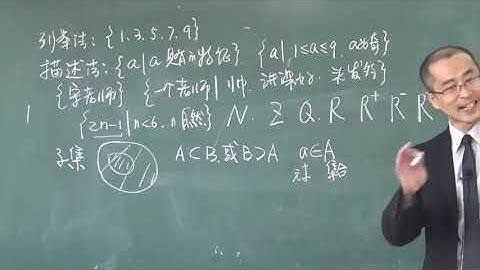 列举法：{1.3.5.7.9}
描述法：{a|a 赋的特征} {a|1≤a≤9. a为奇}
{宇老师} {一个老师|帅. 讲课好. 关发行}
{2n-1|n<6. n自然} N. Z Q. R R⁺ R⁻ R
子集 A⊂B. 或 B⊃A a∈A
元素 集合